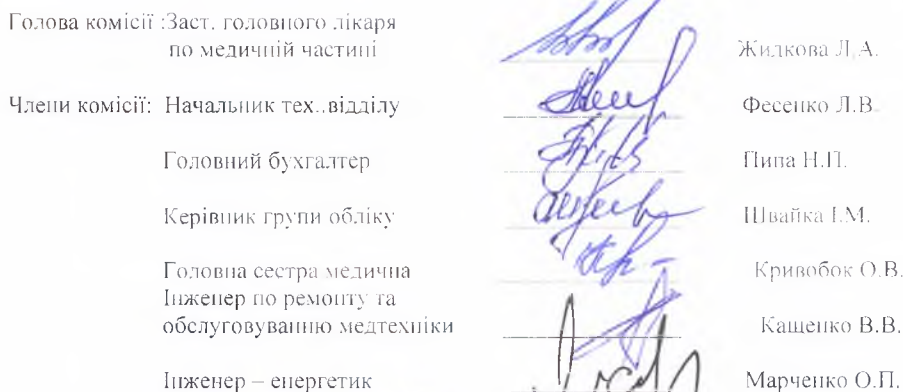 Голова комісії :Заст. головного лікаря
по медичній частині Жидкова Л.А.
Члени комісії: Начальник тех..відділу Фесенко Л.В.
Головний бухгалтер Пипа Н.П.
Керівник групи обліку Швайка І.М.
Головна сестра медична Кривобок О.В.
Інженер по ремонту та
обслуговуванню медтехніки Кащенко В.В.
Інженер – енергетик Марченко О.П.